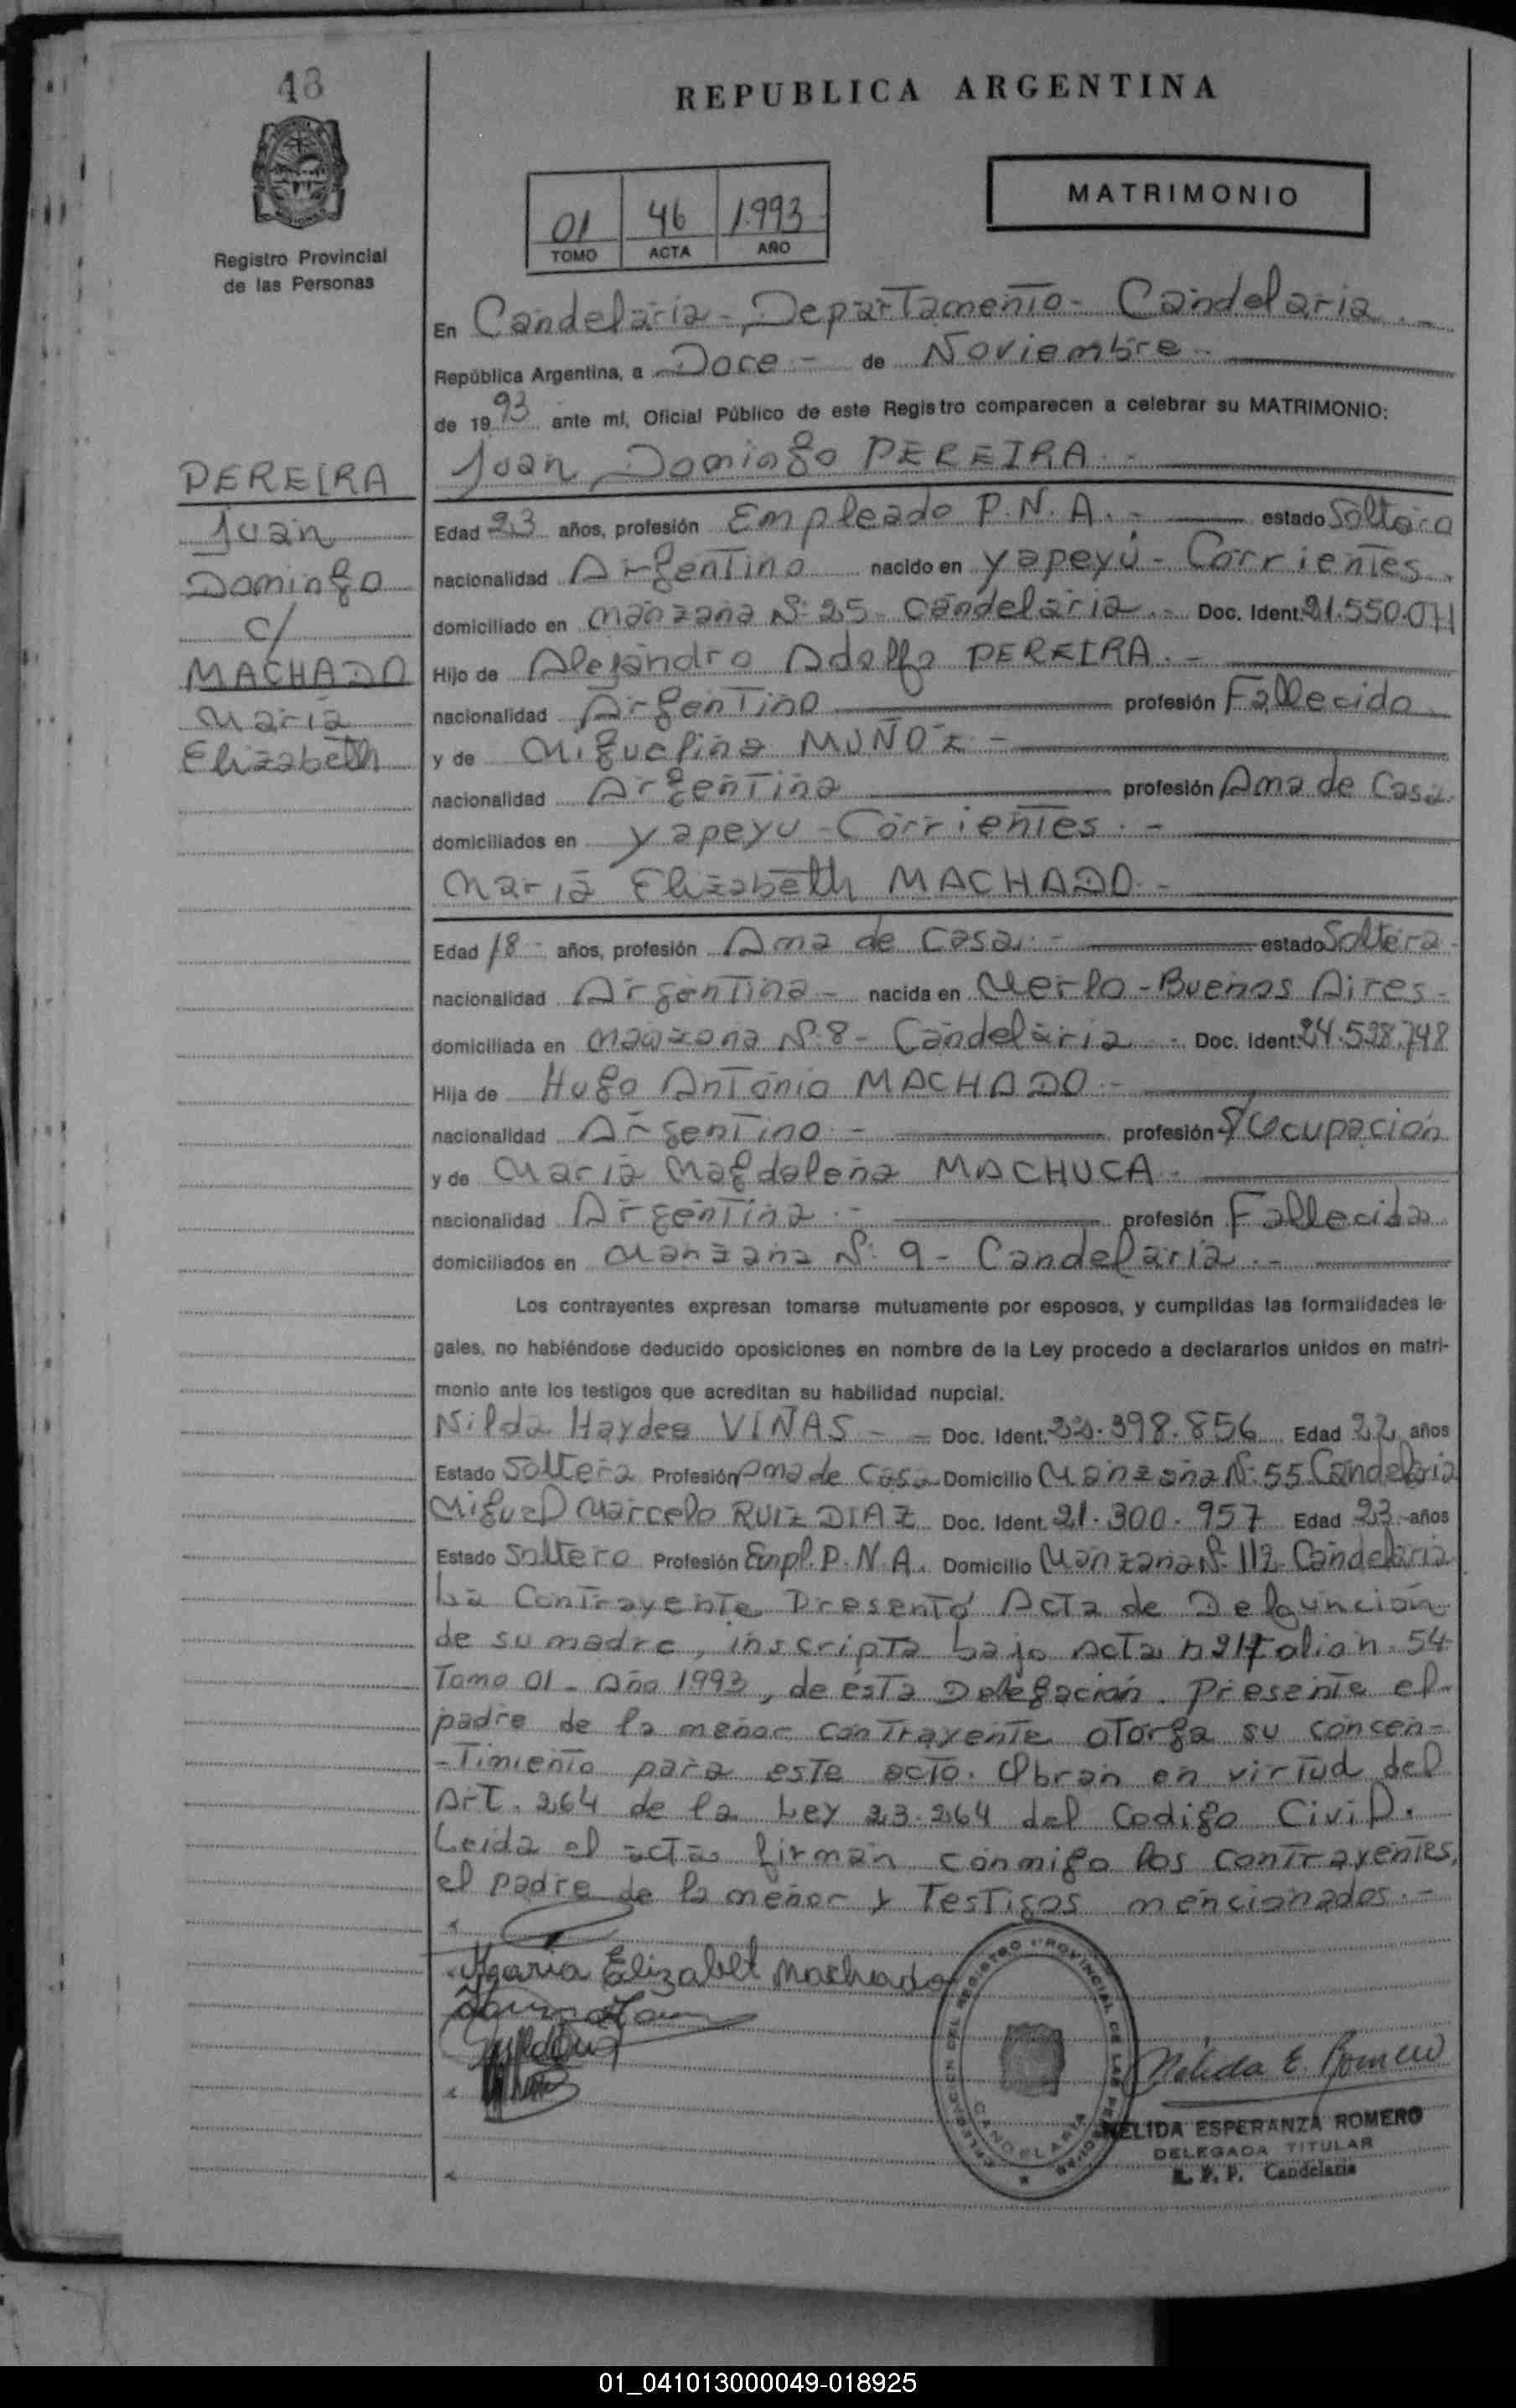 48
REPUBLICA ARGENTINA
Registro Provincial
de las Personas
01 46 1.993
TOMO ACTA AÑO
MATRIMONIO
En Candelaria - Departamento - Candelaria. -
República Argentina, a Doce - de Noviembre -
de 1993 ante mí, Oficial Público de este Registro comparecen a celebrar su MATRIMONIO:
Juan Domingo PEREIRA. -
PEREIRA
Juan
Domingo
c/
MACHADO
María
Elizabeth
Edad 23 años, profesión Empleado P.N.A. - estado Soltero
nacionalidad Argentino nacido en Yapeyú - Corrientes.
domiciliado en Manzana Nº 25 - Candelaria. - Doc. Ident. 21.550.071
Hijo de Alejandro Adolfo PEREIRA. -
nacionalidad Argentino profesión Fallecido
y de Miguelina MUÑOZ -
nacionalidad Argentina profesión Ama de Casa
domiciliados en Yapeyu - Corrientes. -
María Elizabeth MACHADO. -
Edad 18 - años, profesión Ama de Casa. - estado Soltera -
nacionalidad Argentina - nacida en Merlo - Buenos Aires -
domiciliada en Manzana Nº 8 - Candelaria - Doc. Ident. 24.598.748
Hija de Hugo Antonio MACHADO. -
nacionalidad Argentino - profesión S/Ocupación
y de María Magdalena MACHUCA -
nacionalidad Argentina. - profesión Fallecida
domiciliados en Manzana Nº 9 - Candelaria. -
Los contrayentes expresan tomarse mutuamente por esposos, y cumplidas las formalidades le-
gales, no habiéndose deducido oposiciones en nombre de la Ley procedo a declararlos unidos en matri-
monio ante los testigos que acreditan su habilidad nupcial.
Nilda Haydee VIÑAS - - Doc. Ident. 22.398.856 Edad 22 años
Estado Soltera Profesión Ama de Casa Domicilio Manzana Nº 55 Candelaria
Miguel Marcelo RUIZ DIAZ Doc. Ident. 21.300.957 Edad 23 años
Estado Soltero Profesión Empl. P.N.A. Domicilio Manzana Nº 112 Candelaria
La Contrayente Presentó Acta de Defunción
de su madre, inscripta bajo Acta 54
Tomo 01 - Año 1993, de ésta Delegación. Presente el
padre de la menor contrayente otorga su consen-
-timiento para este acto. Obran en virtud del
Art. 264 de la Ley 23.264 del Codigo Civil.
Leida el acta firman conmigo los contrayentes,
el padre de la menor y Testigos mencionados. -
Maria Elizabet Machado
DELEGACION DEL REGISTRO PROVINCIAL DE LAS PERSONAS
CANDELARIA
Nelida E. Romero
NELIDA ESPERANZA ROMERO
DELEGADA TITULAR
R. P. P. Candelaria
01_041013000049-018925